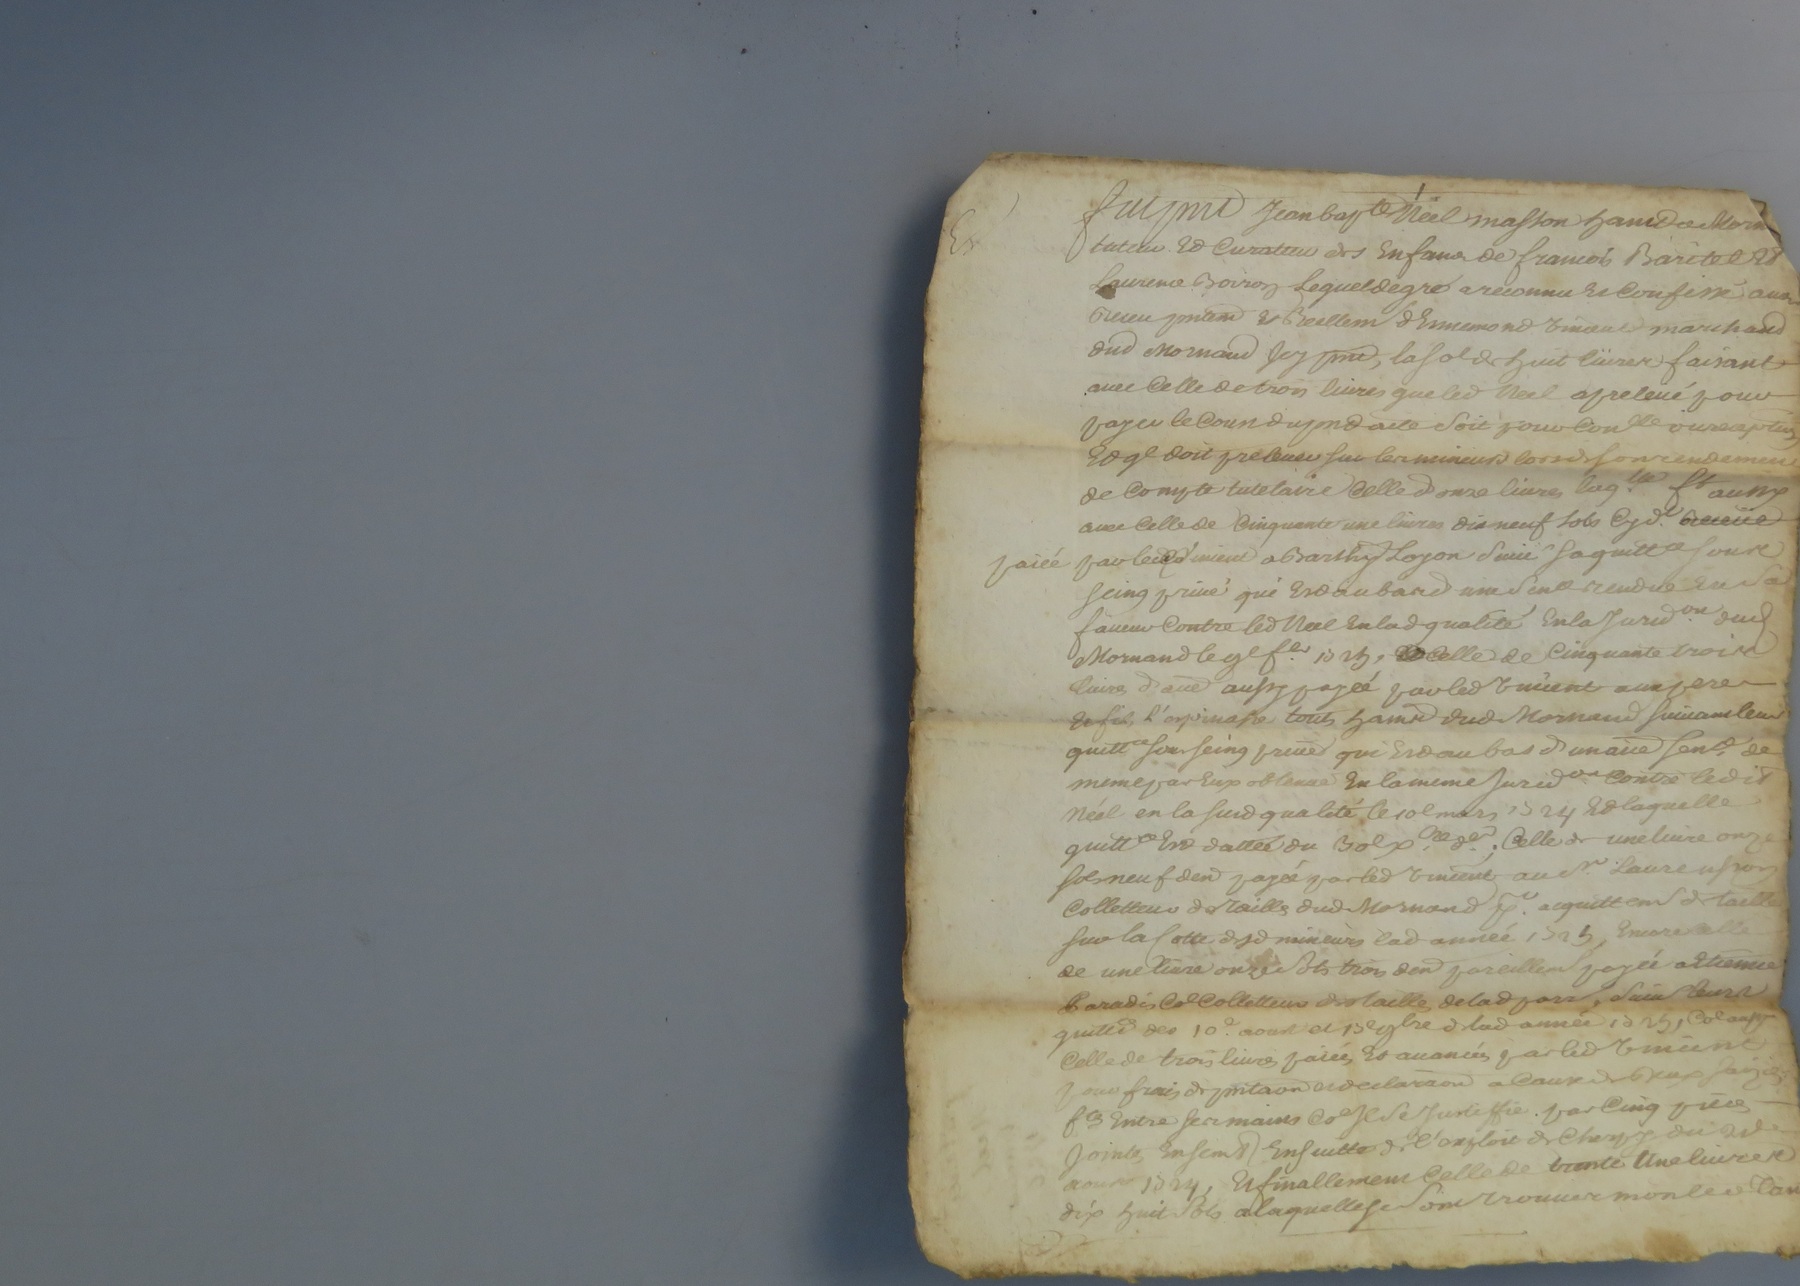 Ex
fut pnt Jean bapte Néel masson hant de Morn
tuteur Et Curateur des Enfans de francois Baritel Et
Laurence Boiron Lequel de gré a reconnu Et Confessé auoir
Receu pntem Et Reellem d'Ennemond Vincent marchand
dud Mornand Icy pnt, la so de huit liures faisant
auec Celle de trois liures que led Néel a preleué pour
payer le Cout du pnd acte soit pour Con
Et ql doit preleuer sur les mineurs lors de son rendement
de Compte tutelaire Celle d'onze liures laqlle ft aussy
auec Celle de Cinquante une liures dix neuf sols Cyd. Receüe
paiéé par led Vincent a Barthy Loyon suiut sa quittce sous
seing priué qui Est au bas d'une sentce rendue En sa
faueur Contre led Néel En lad qualité En la Juridon dud
Mornand le Celle de Cinquante trois
liures d'aue aussy payéé par led Vincent aux pere
Et fils tous hants dud Mornand suiuant leur
quittce sous seing priué qui Est au bas d'un aue sentce de
meme par Eux obtenue En la meme Juridon Contre ledit
Néel en la susd qualité le mars 1724 Et laquelle
quittce Est dattéé du Celle de une liure onze
sols neuf den payéé par led Vincent au Sr Laurenson
Colletteur des Tailles dud Mornand pr. acquittem de taille
sur la Cotte desd mineurs lad année Encore Celle
de une liure onze sols trois den pareillem payéé a Etienne
Paradis Colletteur des tailles de lad parr, suiut leurs
quittces des 10e aoust et de lad année
Celle de trois liures paiéés Et auancéés par led Vincent
pour frais de pntaon Et declaraon a Cause de deux saizies
ftes Entre ses mains Co Il se Justiffie par Cinq pieces
Jointes Ensembl Ensuitte de l'exploit de du
aoust 1724, Et finallement Celle de trente Une liures
dix huit sols a laquelle se sont trouuer monter